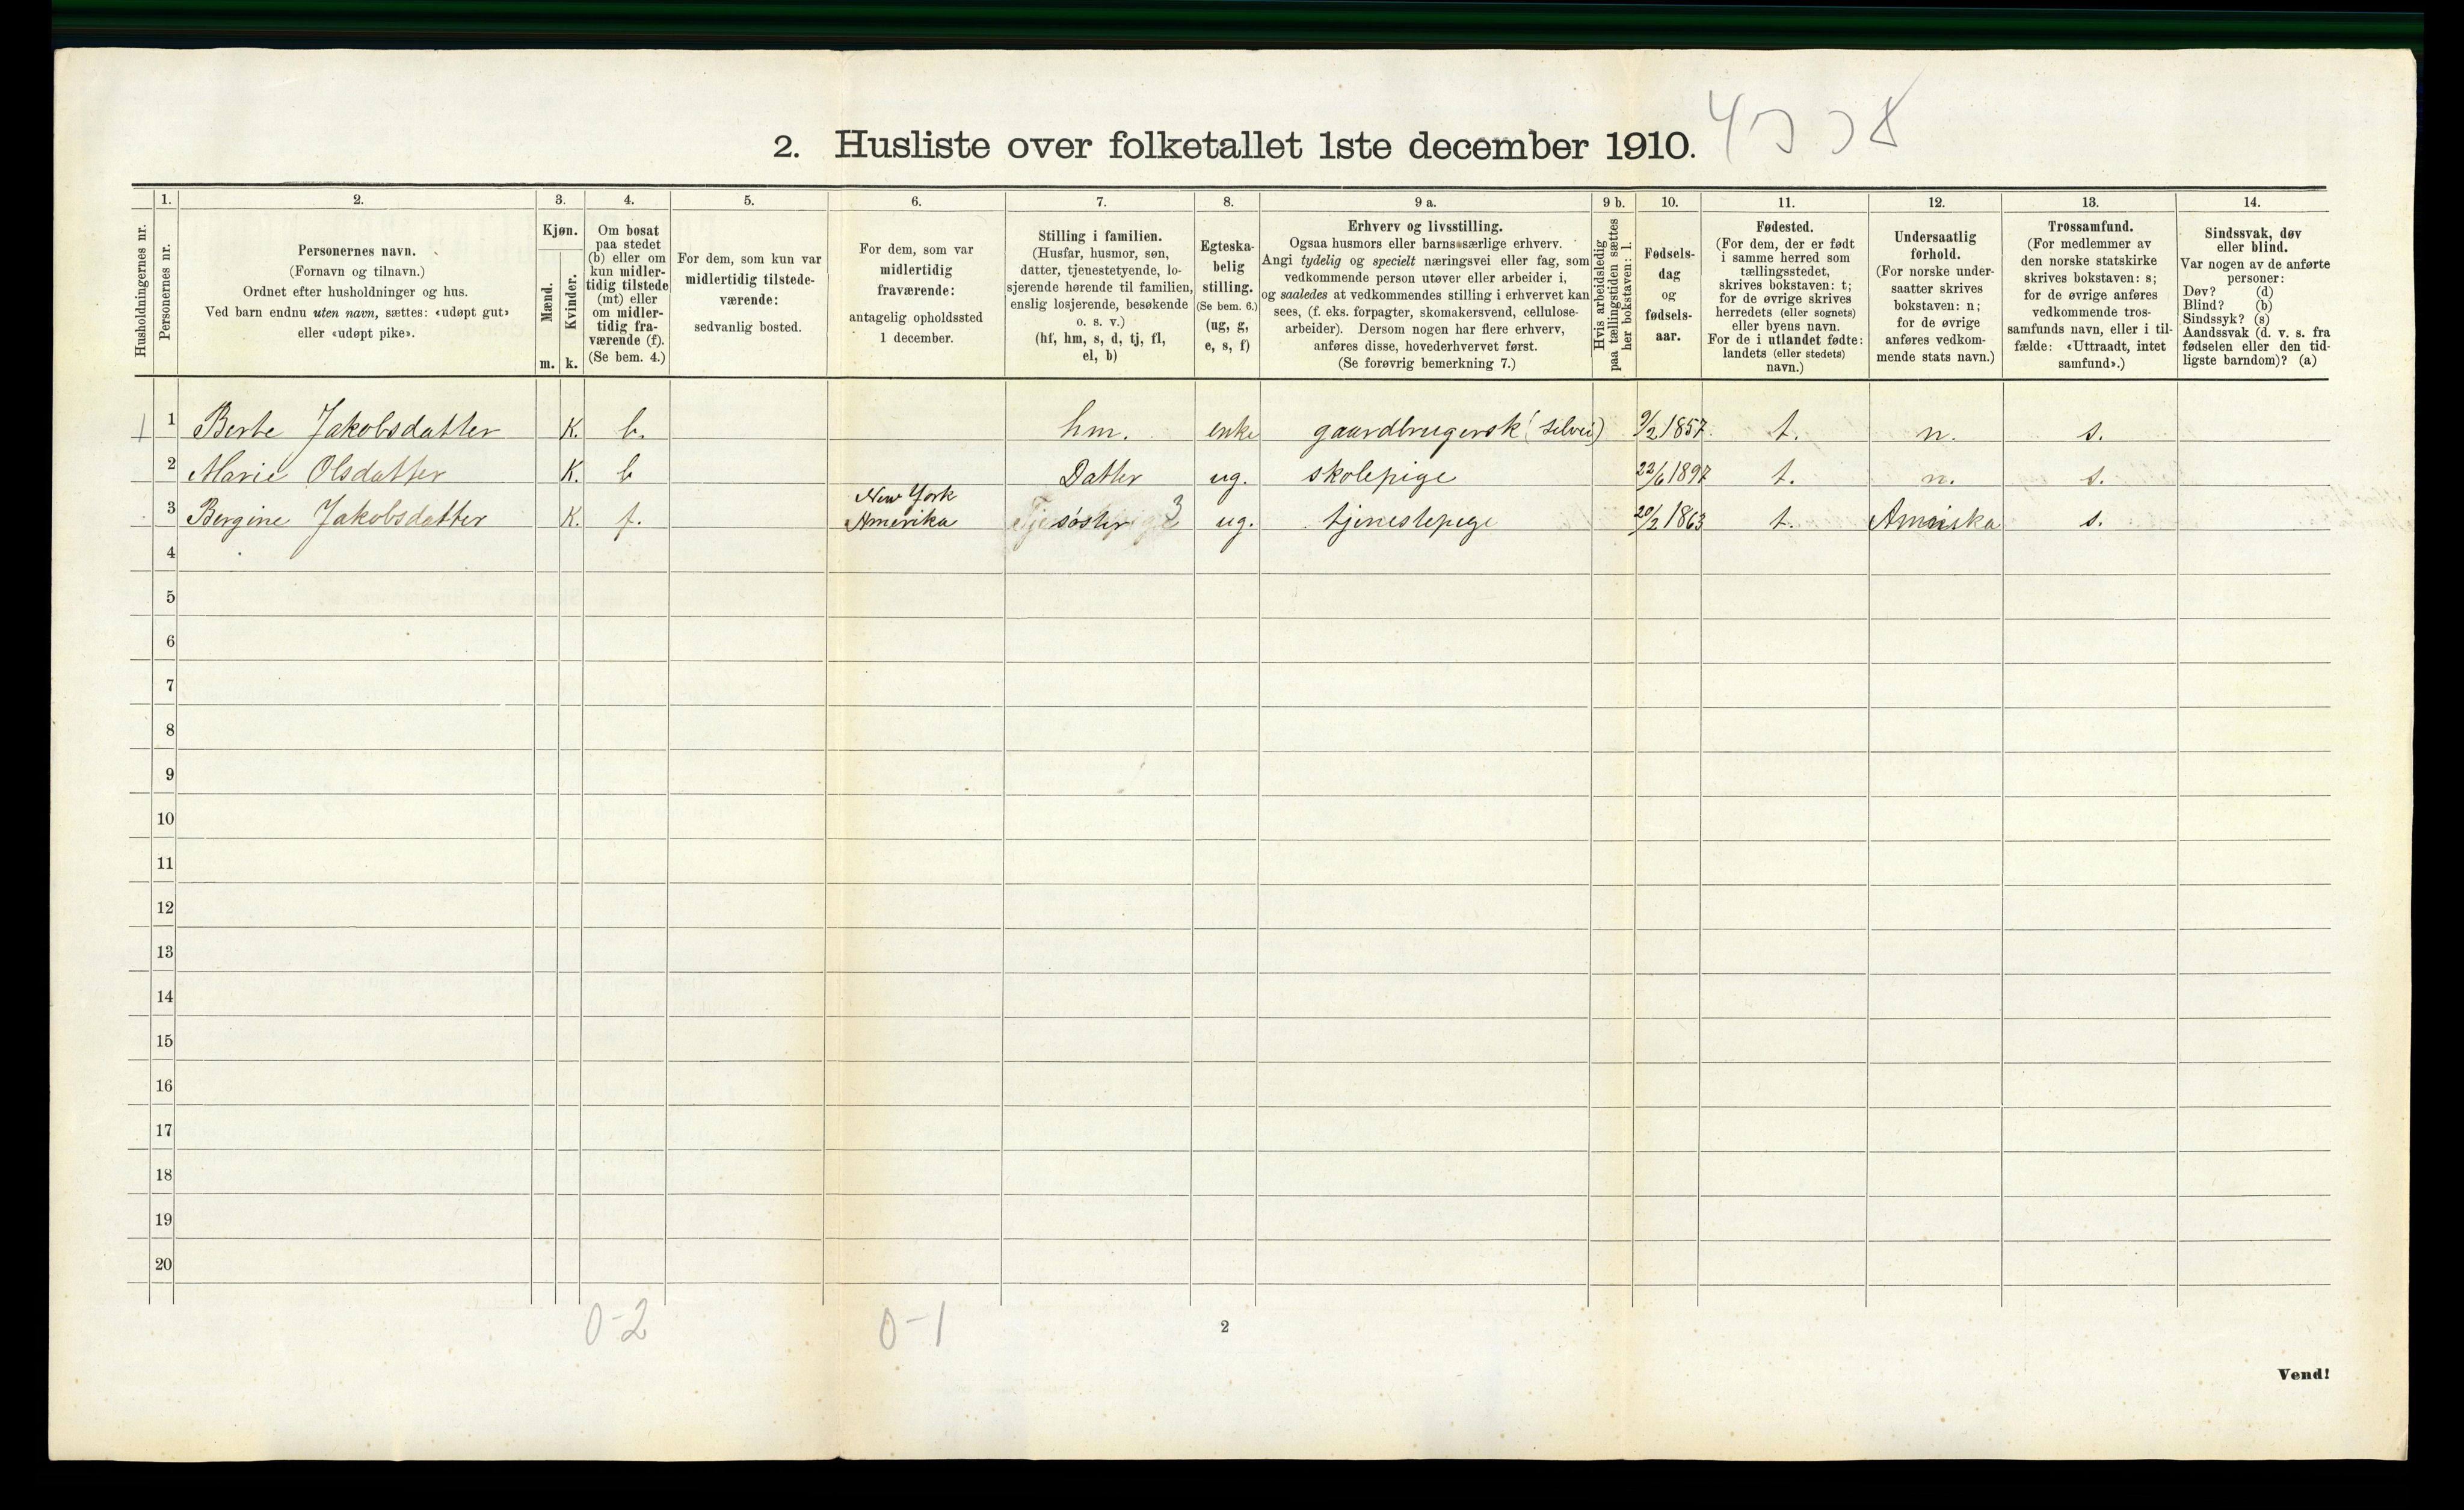 2. Husliste over folketallet 1ste december 1910.
Husholdningernes nr.
1.
Personernes nr.
2.
Personernes navn.
(Fornavn og tilnavn.)
Ordnet efter husholdninger og hus.
Ved barn endnu uten navn, sættes: «udøpt gut»
eller «udøpt pike».
3.
Kjøn.
Mænd.
m.
Kvinder.
k.
4.
Om bosat
paa stedet
(b) eller om
kun midler-
tidig tilstede
(mt) eller
om midler-
tidig fra-
værende (f).
(Se bem. 4.)
5.
For dem, som kun var
midlertidig tilstede-
værende:
sedvanlig bosted.
6.
For dem, som var
midlertidig
fraværende:
antagelig opholdssted
1 december.
7.
Stilling i familien.
(Husfar, husmor, søn,
datter, tjenestetyende, lo-
sjerende hørende til familien,
enslig losjerende, besøkende
o. s. v.)
(hf, hm, s, d, tj, fl,
el, b)
8.
Egteska-
belig
stilling.
(Se bem. 6.)
(ug, g,
e, s, f)
9 a.
Erhverv og livsstilling.
Ogsaa husmors eller barns særlige erhverv.
Angi tydelig og specielt næringsvei eller fag, som
vedkommende person utøver eller arbeider i,
og saaledes at vedkommendes stilling i erhvervet kan
sees, (f. eks. forpagter, skomakersvend, cellulose-
arbeider). Dersom nogen har flere erhverv,
anføres disse, hovederhvervet først.
(Se forøvrig bemerkning 7.)
9 b.
Hvis arbeidsledig
paa tællingstiden sættes
her bokstaven: l.
10.
Fødsels-
dag
og
fødsels-
aar.
11.
Fødested.
(For dem, der er født
i samme herred som
tællingsstedet,
skrives bokstaven: t;
for de øvrige skrives
herredets (eller sognets)
eller byens navn.
For de i utlandet fødte:
landets (eller stedets)
navn.)
12.
Undersaatlig
forhold.
(For norske under-
saatter skrives
bokstaven: n;
for de øvrige
anføres vedkom-
mende stats navn.)
13.
Trossamfund.
(For medlemmer av
den norske statskirke
skrives bokstaven: s;
for de øvrige anføres
vedkommende tros-
samfunds navn, eller i til-
fælde: «Uttraadt, intet
samfund».)
14.
Sindssvak, døv
eller blind.
Var nogen av de anførte
personer:
Døv? (d)
Blind? (b)
Sindssyk? (s)
Aandssvak (d. v. s. fra
fødselen eller den tid-
ligste barndom)? (a)
1 1 Berte Jakobsdatter K. b. hm. enke gaardbrugersk (selvei) 9/2 1857. t. n. s.
2 Marie Olsdatter K. b Datter ug. skolepige 22/6 1897 t. n. s.
3 Bergine Jakobsdatter K. f. New York
Amerika søster 3 ug. tjenestepige 20/2 1863 t. Amerika s.
4
5
6
7
8
9
10
11
12
13
14
15
16
17
18
19
20
0-2 0-1
2
Vend!